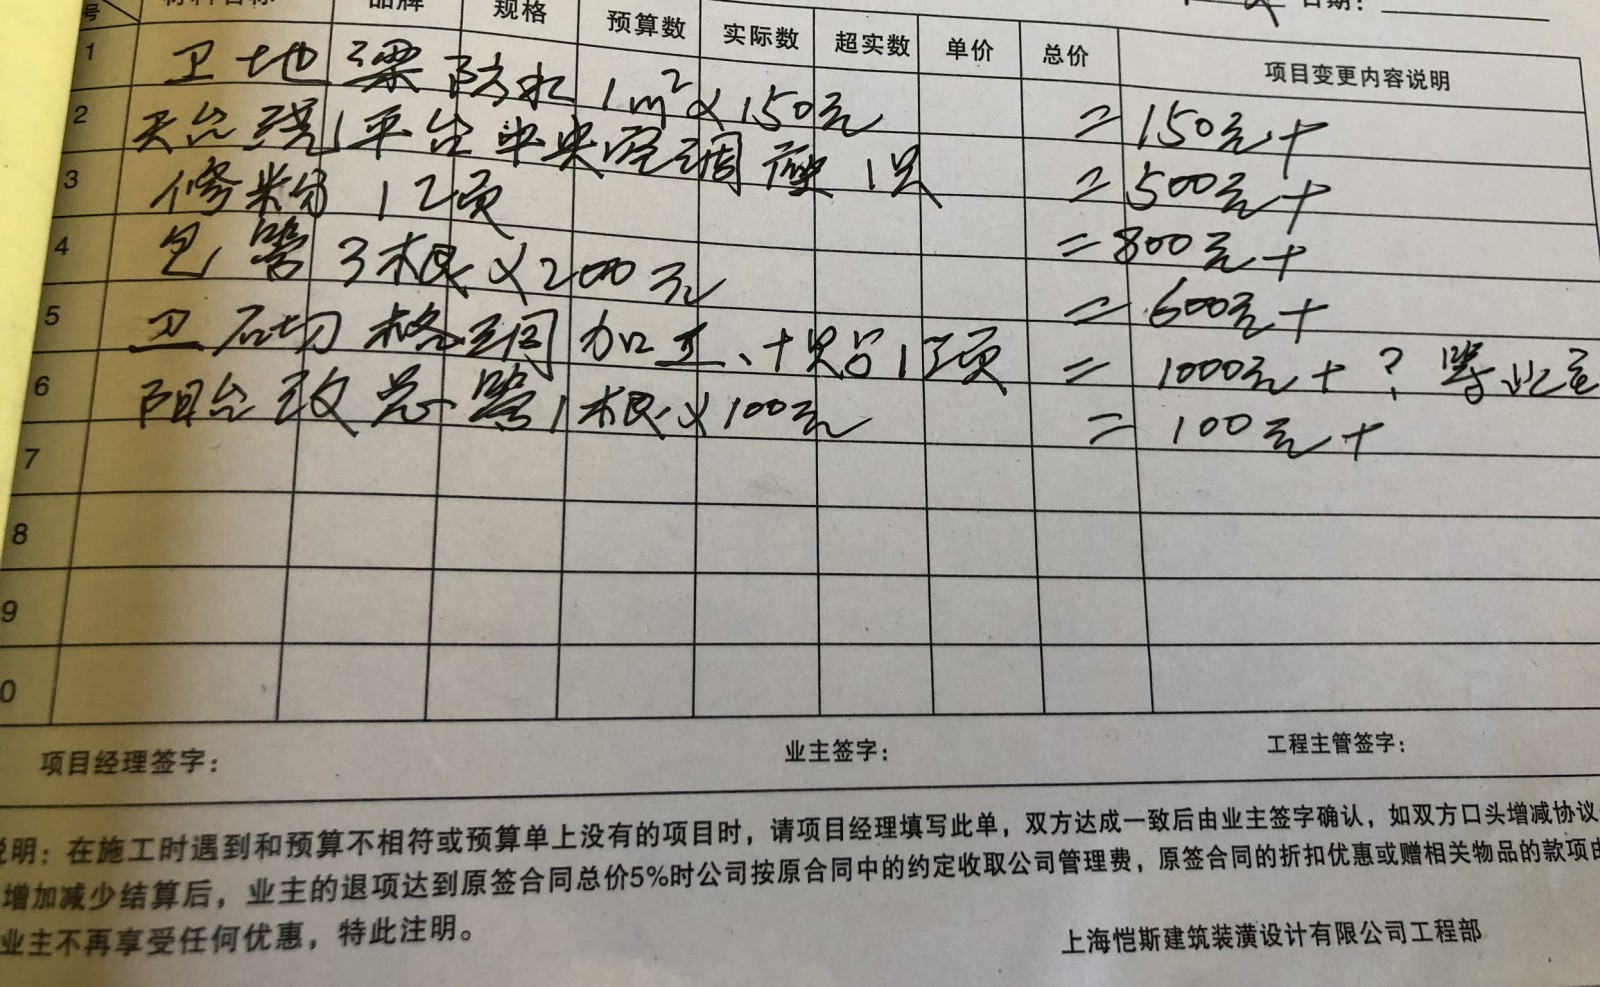 号 材料名称 品牌 规格 预算数 实际数 超实数 单价 总价 项目变更内容说明 日期:
1 卫地梁防水1m²×150元 =150元+
2 天台现1平台中央空调座1只 =500元+
3 修粉1项 =800元+
4 包管3根×200元 =600元+
5 卫石切格调加工、十只台1项 =1000元+?等业主
6 阳台改总管1根×100元 =100元+
7
8
9
0
项目经理签字: 业主签字: 工程主管签字:
说明:在施工时遇到和预算不相符或预算单上没有的项目时,请项目经理填写此单,双方达成一致后由业主签字确认,如双方口头增减协议
增加减少结算后,业主的退项达到原签合同总价5%时公司按原合同中的约定收取公司管理费,原签合同的折扣优惠或赠相关物品的款项由
业主不再享受任何优惠,特此注明。
上海恺斯建筑装潢设计有限公司工程部